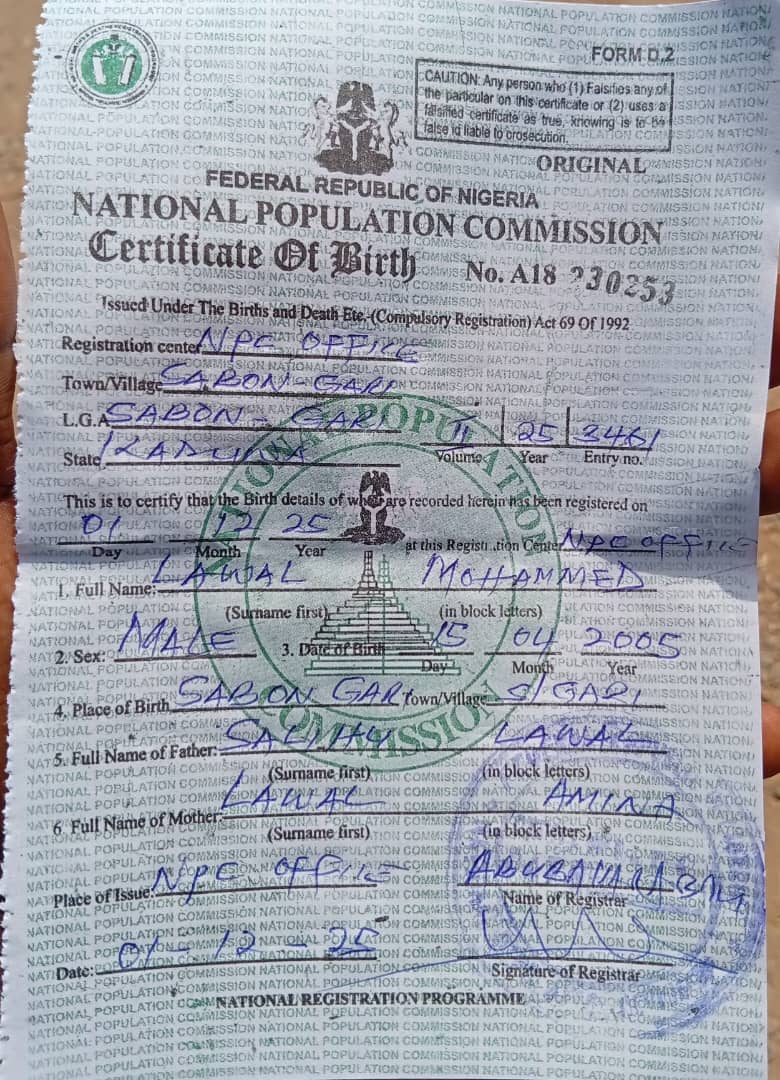 FORM D.2
CAUTION: Any person who (1) Falsifies any of
the particular on this certificate or (2) uses a
falsified certificate as true, knowing is to be
false id liable to prosecution.
ORIGINAL
FEDERAL REPUBLIC OF NIGERIA
NATIONAL POPULATION COMMISSION
Certificate Of Birth No. A18 230253
Issued Under The Births and Death Etc. (Compulsory Registration) Act 69 Of 1992
Registration center NPC OFFICE
Town/Village SABON-GARI
L.G.A SABON-GARI II 25 3461
State KADUNA Volume Year Entry no.
This is to certify that the Birth details of who are recorded herein has been registered on
01 12 25 at this Registration Center NPC OFFICE
Day Month Year
1. Full Name: LAWAL MOHAMMED
(Surname first) (in block letters)
2. Sex: MALE 3. Date of Birth 15 04 2005
Day Month Year
4. Place of Birth SABON GARI Town/Village S/GARI
5. Full Name of Father: SALIHU LAWAL
(Surname first) (in block letters)
6. Full Name of Mother: LAWAL AMINA
(Surname first) (in block letters)
Place of Issue: NPC OFFICE
Name of Registrar
Date: 01-12-25
Signature of Registrar
NATIONAL REGISTRATION PROGRAMME
NATIONAL POPULATION COMMISSION